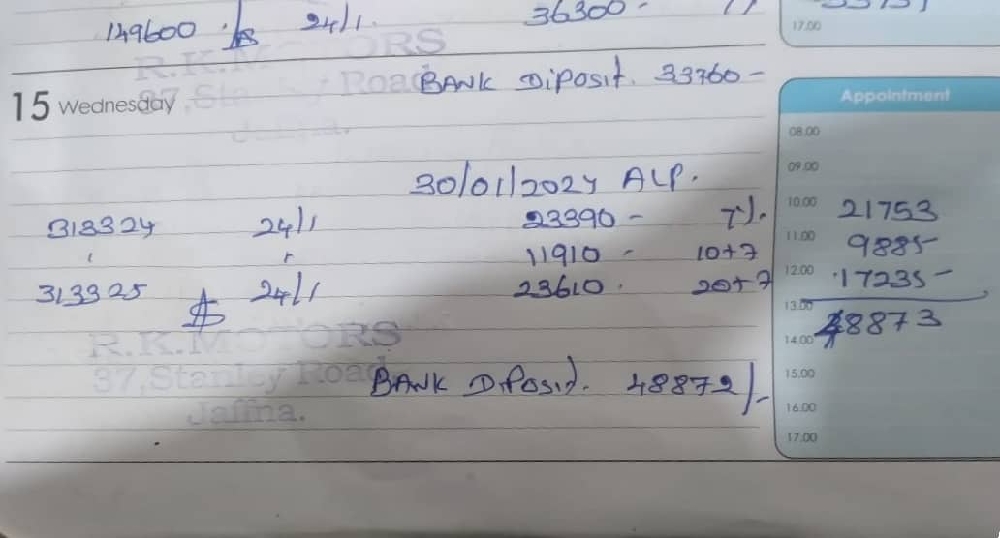 149600 24/1. 36300-
17.00
BANK Diposit. 33760-
15 Wednesday
Appointment
08.00
09.00
30/01/2024 ALP.
313324 24/1 23390- 7%. 10.00 21753
11910- 10+7 11.00 9885
313325 24/1 23610. 20+7 12.00 17235-
13.00
14.00 48873
R.K.MOTORS
37,Stanley Road,
Jaffna.
BANK Diposit. 48872/-
15.00
16.00
17.00